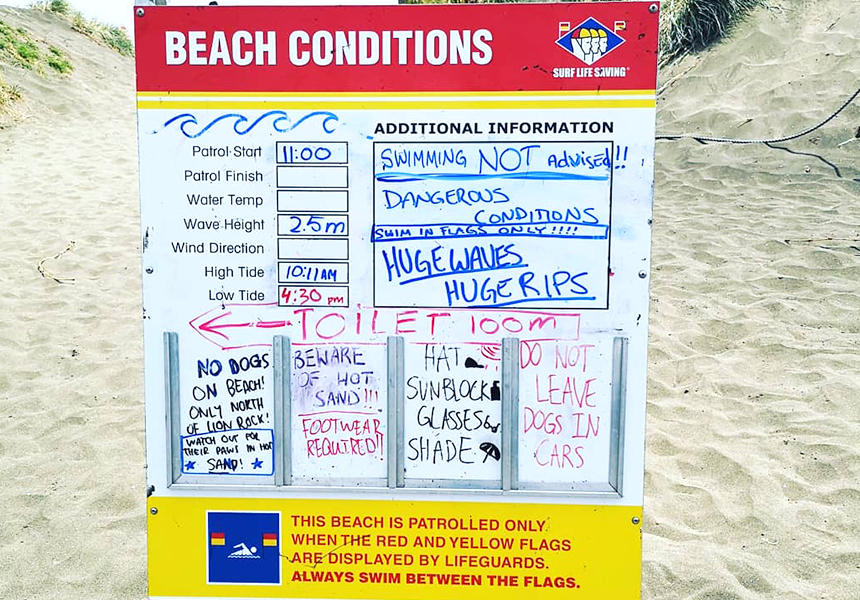 BEACH CONDITIONS
SURF LIFE SAVING
ADDITIONAL INFORMATION
Patrol Start 11:00
Patrol Finish
Water Temp
Wave Height 2.5m
Wind Direction
High Tide 10:11AM
Low Tide 4:30 pm
SWIMMING NOT Advised!!
DANGEROUS
CONDITIONS
SWIM IN FLAGS ONLY!!!!
HUGE WAVES
HUGE RIPS
TOILET 100m
NO DOGS
ON BEACH!
ONLY NORTH
OF LION ROCK!
WATCH OUT FOR
THEIR PAWS IN HOT
SAND!
BEWARE
OF HOT
SAND!!!
FOOTWEAR
REQUIRED!!
HAT
SUNBLOCK
GLASSES
SHADE
DO NOT
LEAVE
DOGS IN
CARS
THIS BEACH IS PATROLLED ONLY
WHEN THE RED AND YELLOW FLAGS
ARE DISPLAYED BY LIFEGUARDS.
ALWAYS SWIM BETWEEN THE FLAGS.